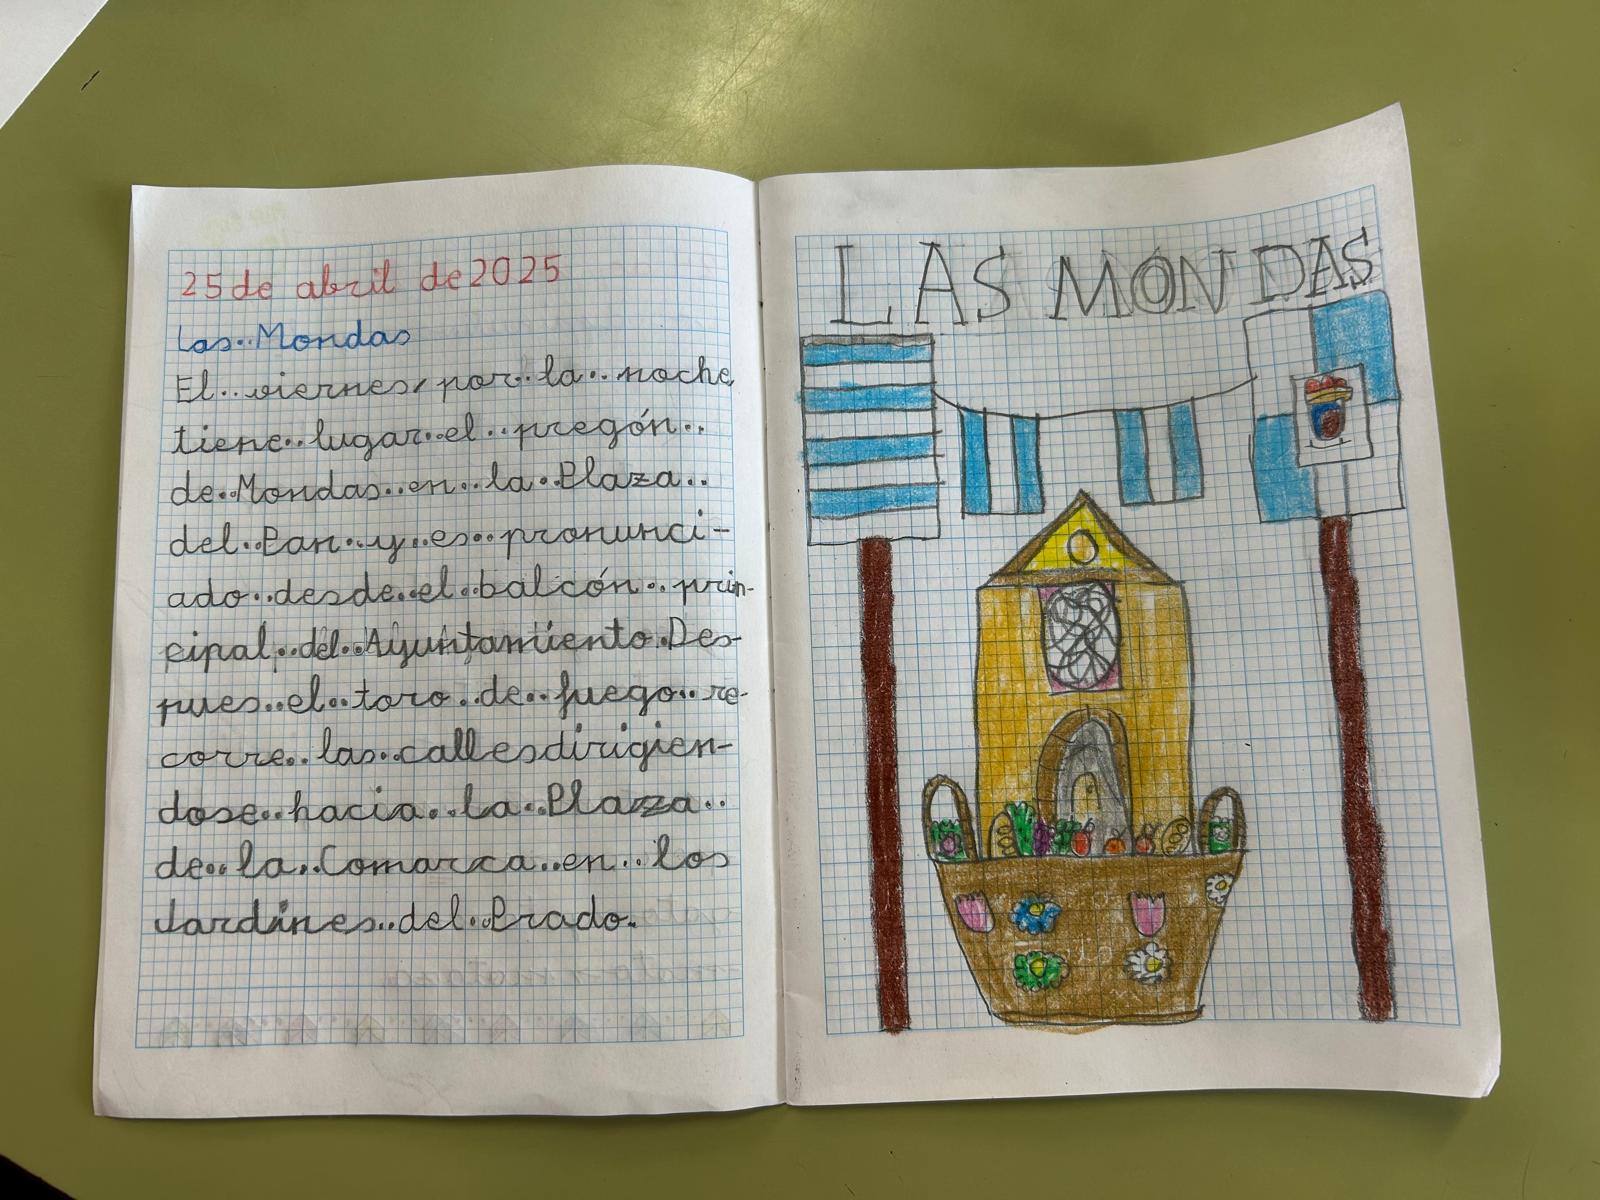 25 de abril de 2025
Las Mondas
El viernes, por la noche
tiene lugar el pregón
de Mondas en la Plaza
del Pan y es pronunci-
ado desde el balcón prin-
cipal del Ayuntamiento. Des-
pues el toro de fuego re-
corre las calles dirigien-
dose hacia la Plaza
de la Comarca en los
Jardines del Prado.
LAS MONDAS